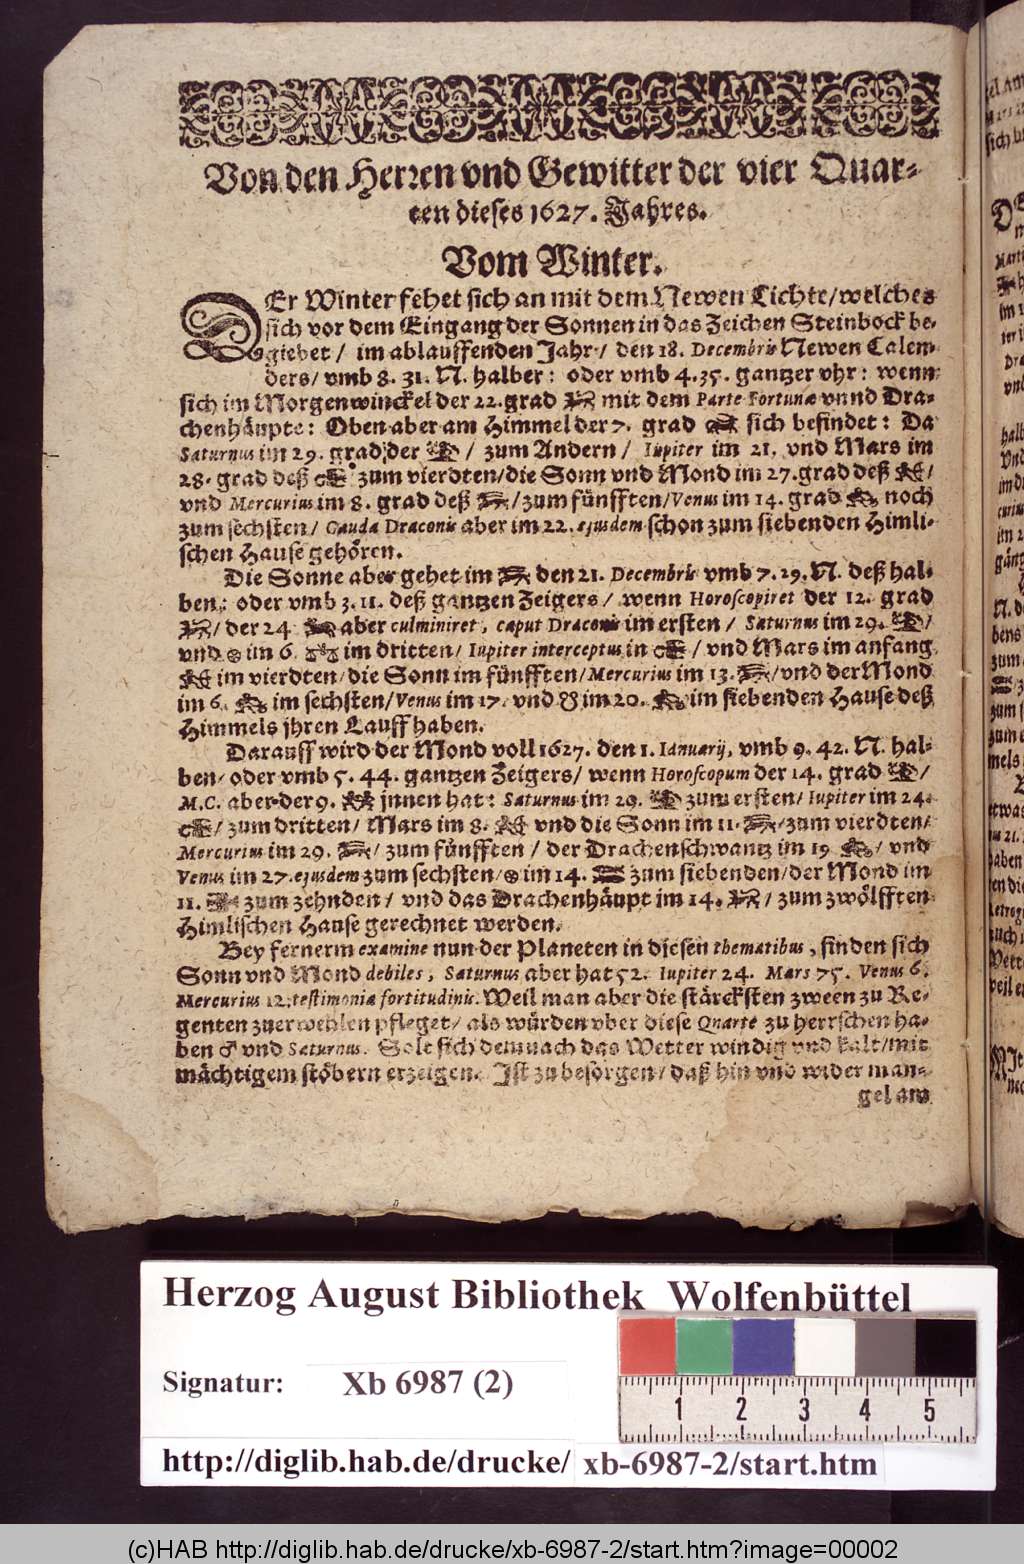 Von den Herren vnd Gewitter der vier Quar-
ten dieses 1627. Jahres.
Vom Winter.
DEr Winter fehet sich an mit dem Newen Liechte/welches
sich vor dem Eingang der Sonnen in das Zeichen Steinbock be-
giebet / im ablauffenden Jahr / den 18. Decembris Newen Calen-
ders/ vmb 8. 31. N. halber: oder vmb 4.35. gantzer vhr: wenn
sich im Morgenwinckel der 22. grad ♌ mit dem Parte Fortunæ vnnd Dra-
chenhäupte: Oben aber am Himmel der 7. grad sich befindet: Da
Saturnus im 29. grad der / zum Andern / Iupiter im 21. vnd Mars im
28. grad deß zum vierdten/die Sonn vnd Mond im 27. grad deß /
vnd Mercurius im 8. grad deß /zum fünfften/Venus im 14. grad noch
zum sechsten/ Cauda Draconis aber im 22. ejusdem schon zum siebenden Himli-
schen Hause gehören.
Die Sonne aber gehet im den 21. Decembris vmb 7. 29. N. deß hal-
ben: oder vmb 3. 11. deß gantzen Zeigers / wenn Horoscopiret der 12. grad
/ der 24 aber culminiret, caput Draconis im ersten / Saturnus im 29. /
vnd ⊗ im 6. im dritten/ Iupiter interceptus in / vnd Mars im anfang
im vierdten/die Sonn im fünfften/Mercurius im 13. /vnd der Mond
im 6. im sechsten/Venus im 17. vnd ☋ im 20. im siebenden Hause deß
Himmels jhren Lauff haben.
Darauff wird der Mond voll 1627. den 1. Ianuarij, vmb 9. 42. N. hal-
ben/ oder vmb 5. 44. gantzen Zeigers/ wenn Horoscopum der 14. grad /
M.C. aber der 9. jnnen hat: Saturnus im 29. zum ersten/ Iupiter im 24.
/ zum dritten/ Mars im 8. vnd die Sonn im 11. /zum vierdten/
Mercurius im 29. / zum fünfften / der Drachenschwantz im 19 / vnd
Venus im 27. ejusdem zum sechsten/⊗ im 14. zum siebenden/der Mond im
11. zum zehnden/ vnd das Drachenhäupt im 14. / zum zwölfften
Himlischen Hause gerechnet werden.
Bey fernerm examine nun der Planeten in diesen thematibus, finden sich
Sonn vnd Mond debiles, Saturnus aber hat 52. Iupiter 24. Mars 75. Venus 6.
Mercurius 12. testimonia fortitudinis. Weil man aber die stärcksten zween zu Re-
genten zuerwehlen pfleget/ als würden vber diese Quarte zu herrschen ha-
ben ♂ vnd Saturnus. Solt sich demnach das Wetter windig vnd kalt/mit
mächtigem stöbern erzeigen. Jst zu besorgen/ daß hin vnd wider man-
gel am
Herzog August Bibliothek Wolfenbüttel
Signatur: Xb 6987 (2)
1 2 3 4 5
http://diglib.hab.de/drucke/ xb-6987-2/start.htm
(c)HAB http://diglib.hab.de/drucke/xb-6987-2/start.htm?image=00002